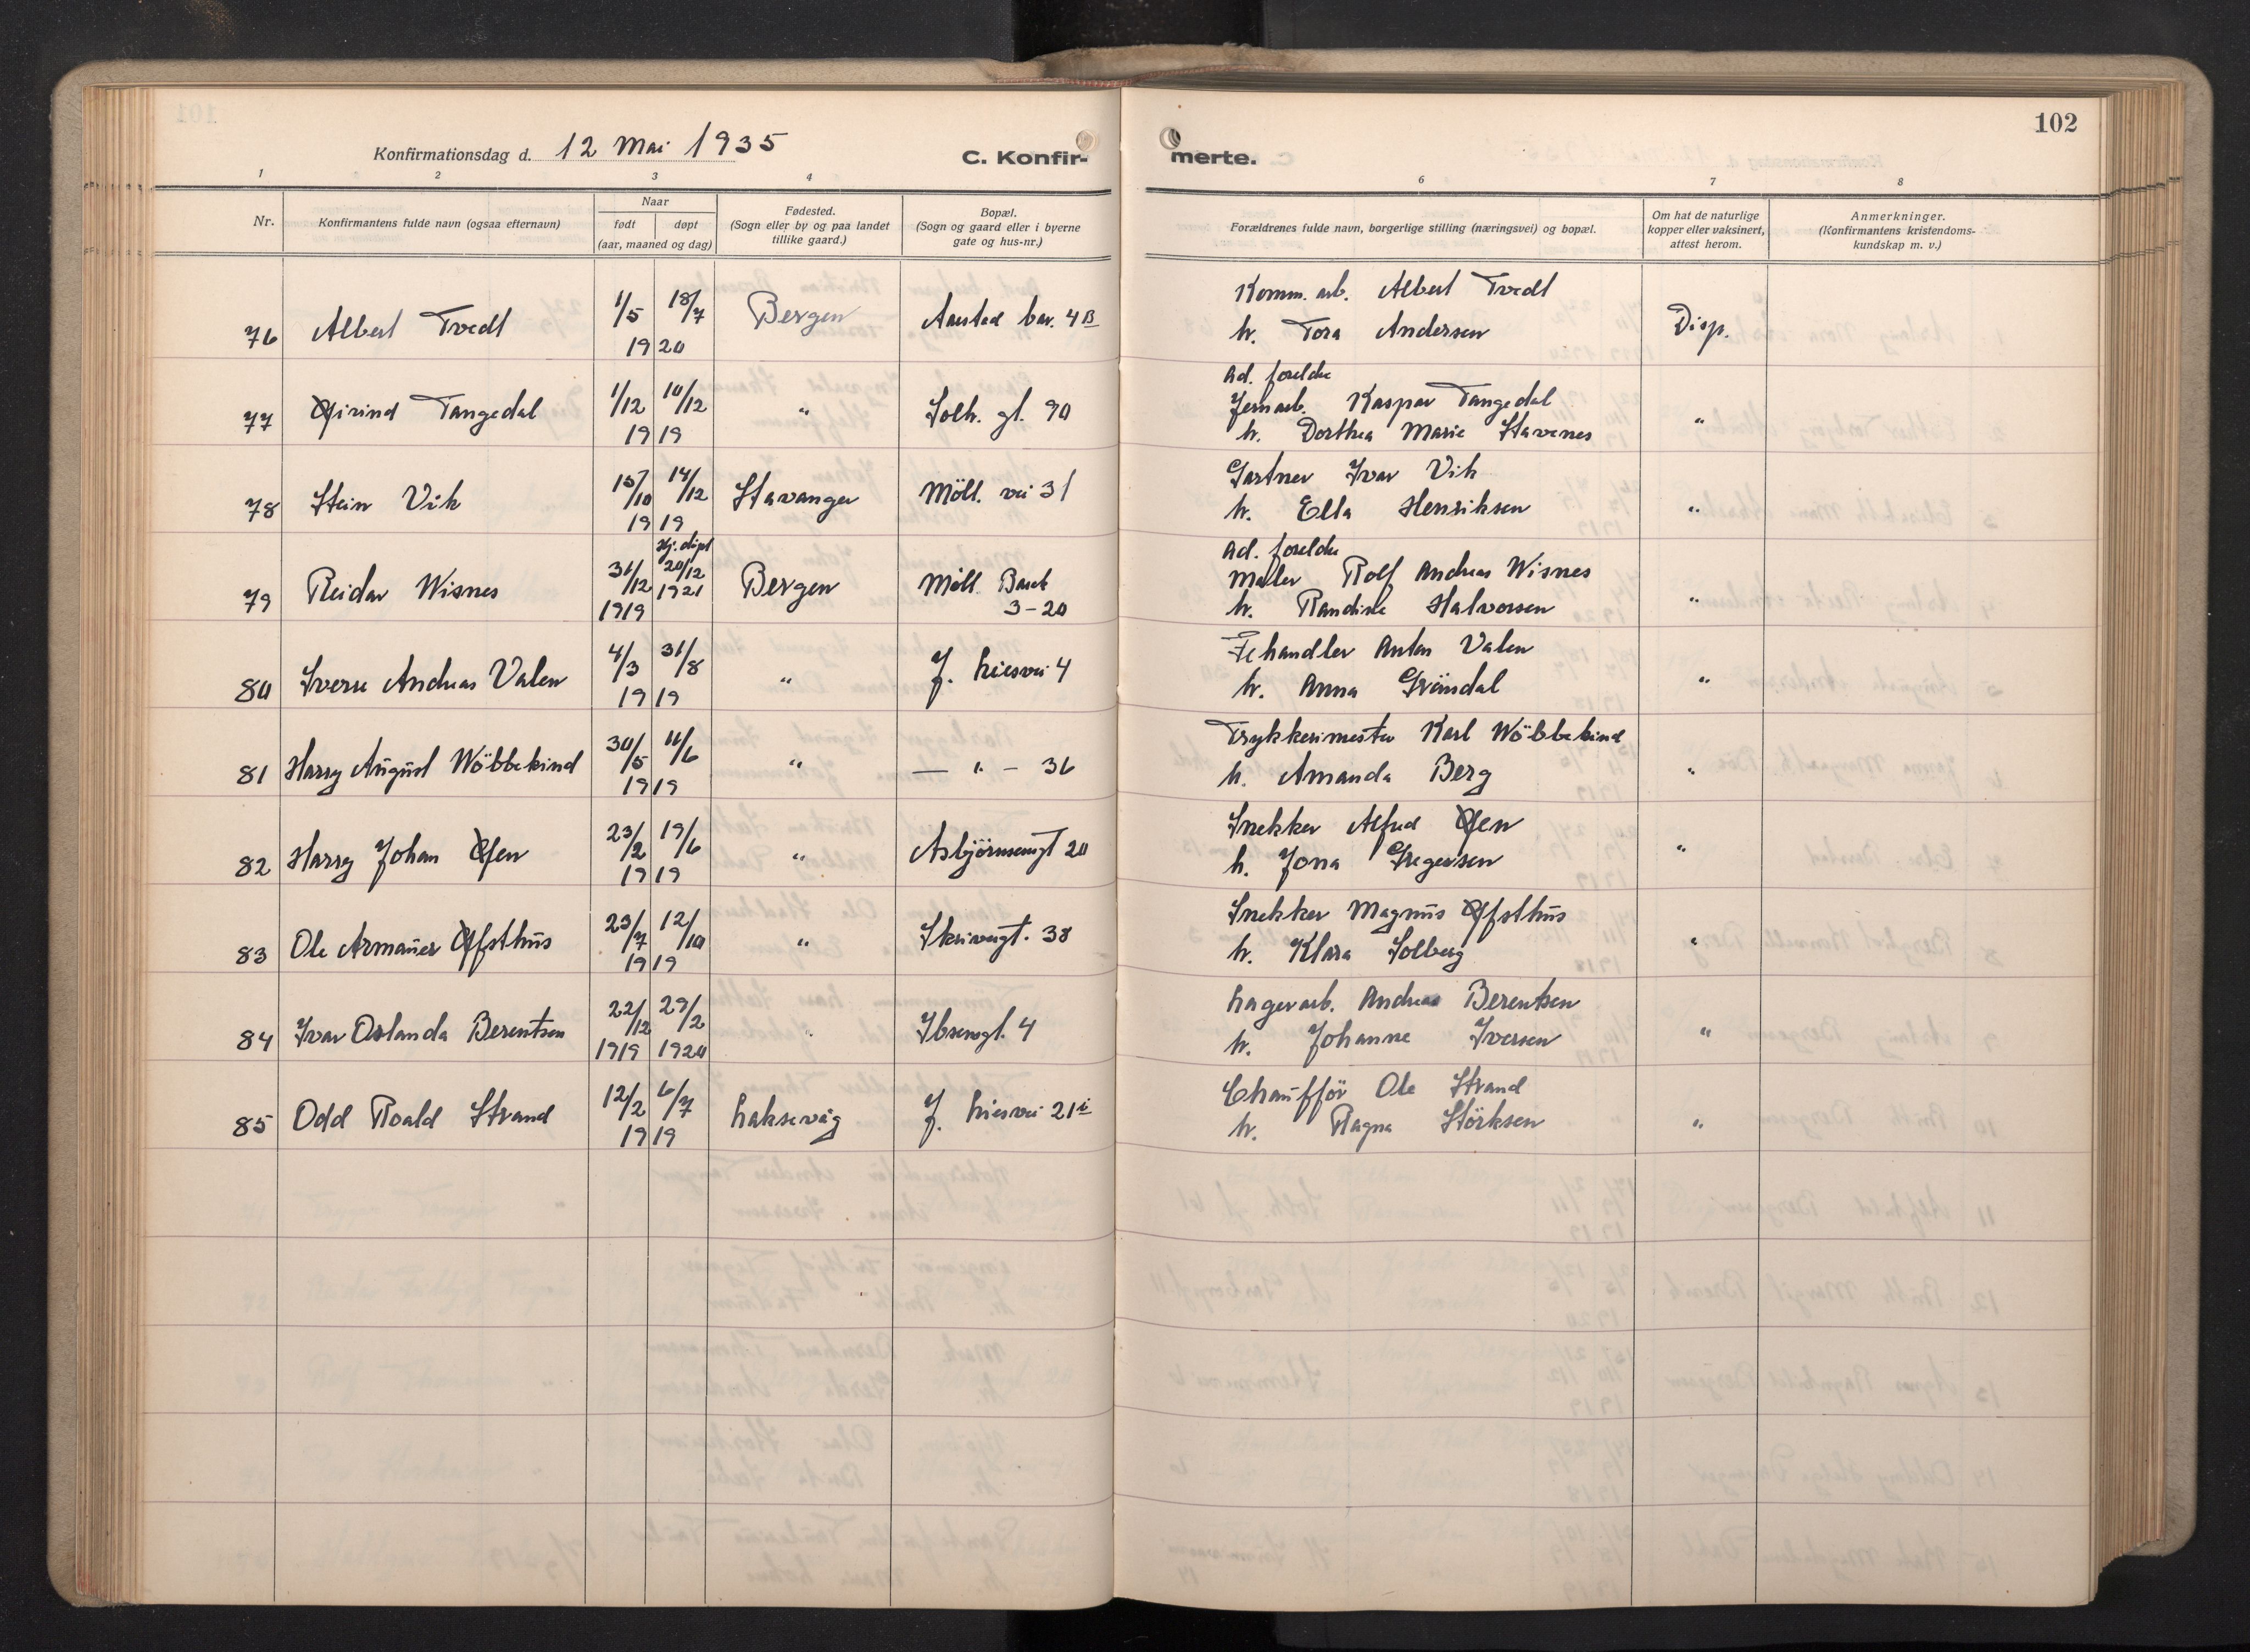 102
Konfirmationsdag d. 12 Mai 1935
C. Konfir- merte.
1 2 3 4 6 7 8
Nr.
Konfirmantens fulde navn (ogsaa efternavn)
Naar
født døpt
(aar, maaned og dag)
Fødested.
(Sogn eller by og paa landet
tillike gaard.)
Bopæl.
(Sogn og gaard eller i byerne
gate og hus-nr.)
Forældrenes fulde navn, borgerlige stilling (næringsvei) og bopæl.
Om hat de naturlige
kopper eller vaksinert,
attest herom.
Anmerkninger.
(Konfirmantens kristendoms-
kundskap m. v.)
76 Albert Tvedt 1/5 18/7 1920 Bergen Aarstad bar. 4B
Komm. arb. Albert Tvedt
h. Tora Andersen Disp.
77 Øivind Tangedal 1/12 10/12 1919 " Solh. gt. 90
Ad. forelde
Jernarb. Kaspar Tangedal
h. Dorthea Marie Stavenes "
78 Stein Vik 15/10 14/12 1919 Stavanger Möll. vei 31
Gartner Ivar Vik
h. Ella Henriksen "
79 Reidar Wisnes 31/12 1919 Hj. döpt 20/12 1921 Bergen Möll. Barak
3-20
Ad. forelde
Maler Rolf Andreas Wisnes
h. Randine Halvorsen "
80 Sverre Andreas Valen 4/3 31/8 1919 " J. Liesvei 4
Fehandler Anton Valen
h. Anna Gröndal "
81 Harry August Wöbbekind 30/5 11/6 1919 " — " — 36
Trykkerimester Karl Wöbbekind
h. Amanda Berg "
82 Harry Johan Øen 23/2 19/6 1919 " Asbjörnsensgt 20
Snekker Alfred Øen
h. Jona Gregersen "
83 Ole Armauer Øfsthus 23/7 12/10 1919 " Skriverg t. 38
Snekker Magnus Øfsthus
h. Klara Solberg "
84 Ivar Oslanda Berentsen 22/12 1919 29/2 1920 " Ibsensgt. 4
Lagerarb. Andreas Berentsen
h. Johanne Iversen "
85 Odd Roald Strand 12/2 6/7 1919 Laksevåg J. Liesvei 21 i
Chaufför Ole Strand
h. Ragna Störksen "